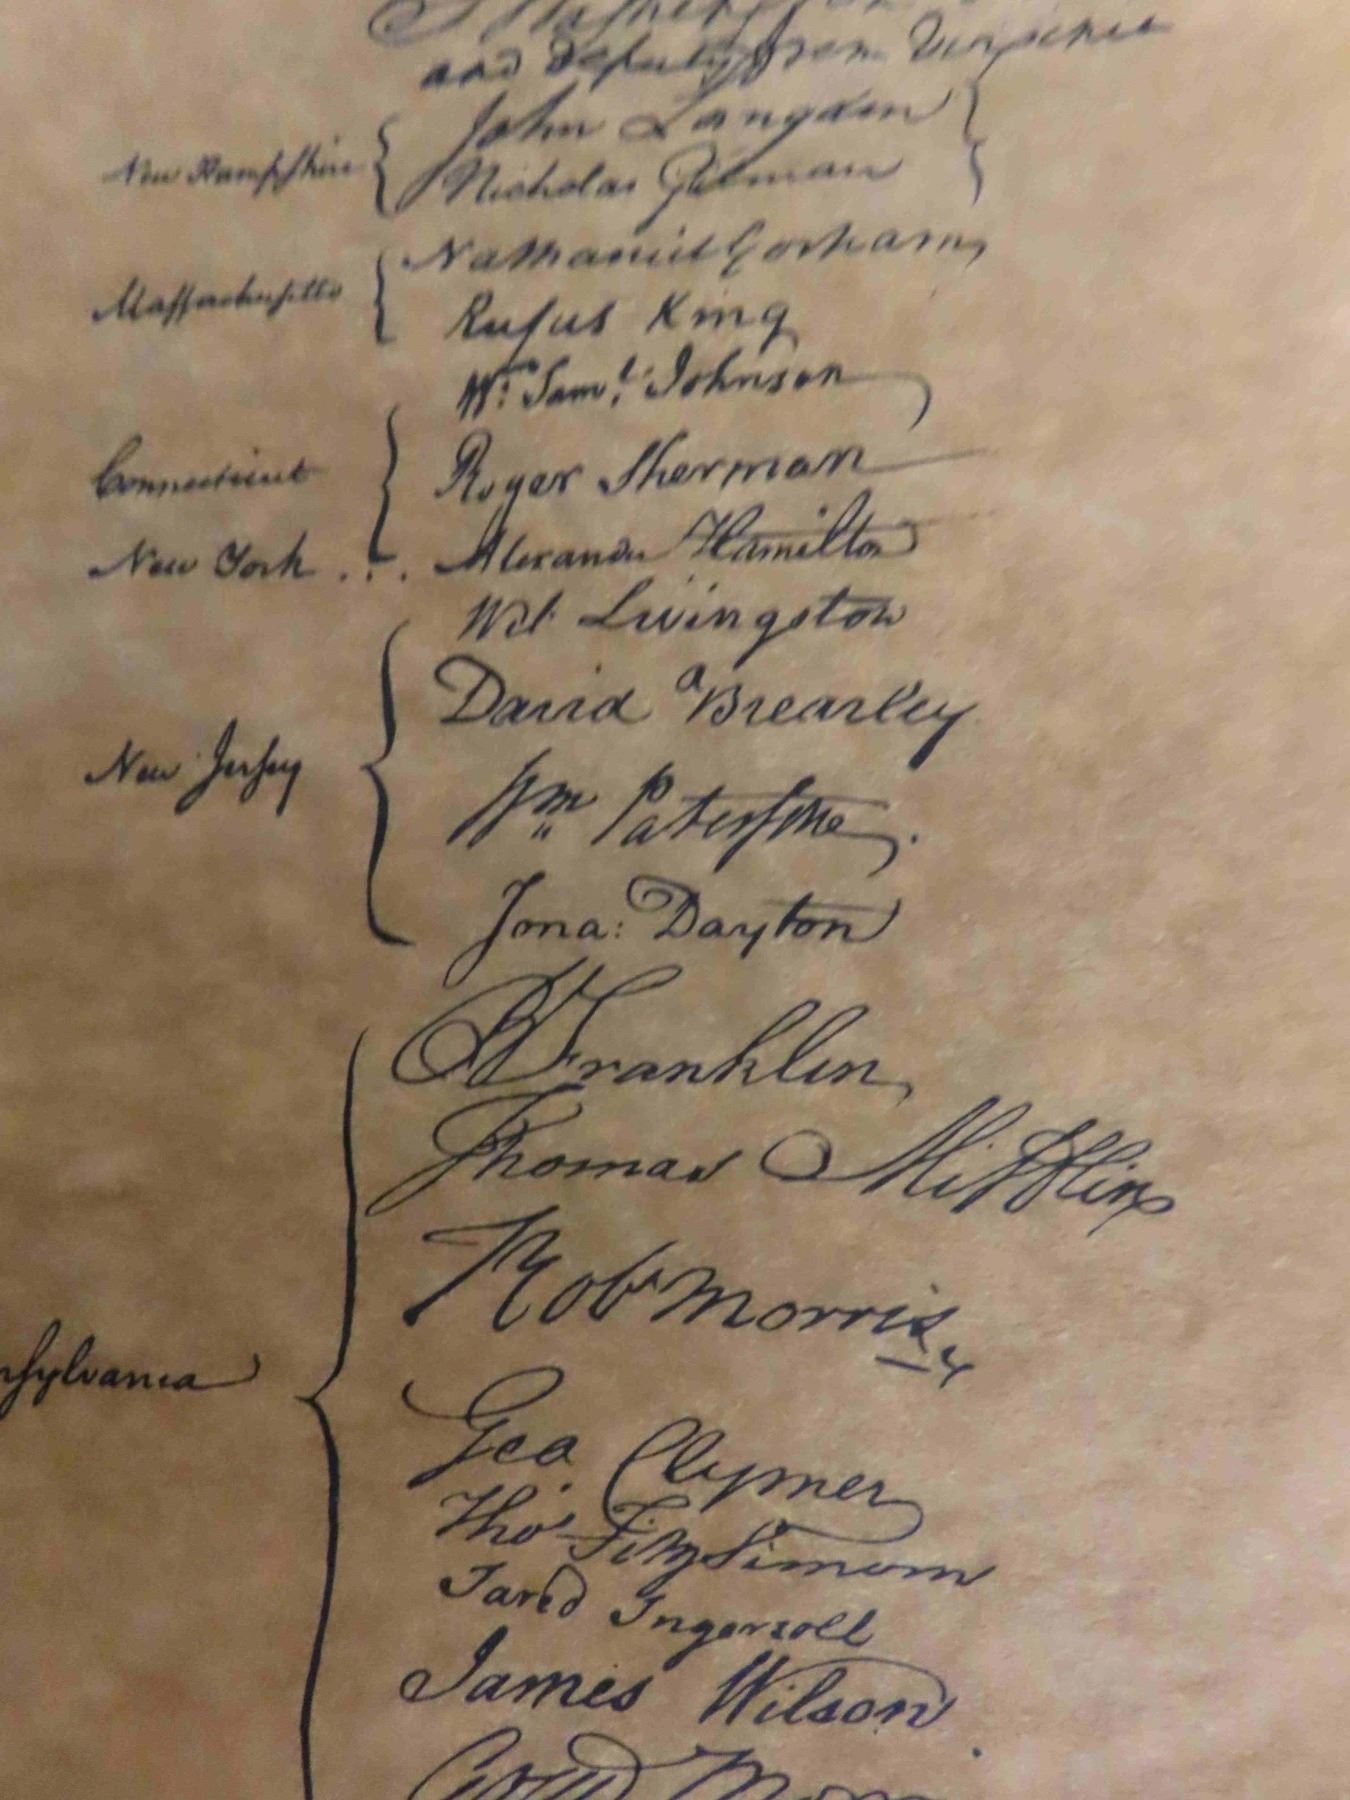 and deputy from Virginia
New Hampshire { John Langdon }
Nicholas Gilman
Massachusetts { Nathaniel Gorham
Rufus King
Wm: Saml. Johnson
Connecticut { Roger Sherman
New York . . . Alexander Hamilton
Wil: Livingston
David Brearley
New Jersey { Wm Paterson.
Jona: Dayton
B Franklin
Thomas Mifflin
Robt Morris
nsylvania { Geo. Clymer
Thos FitzSimons
Jared Ingersoll
James Wilson
Gouv Morr